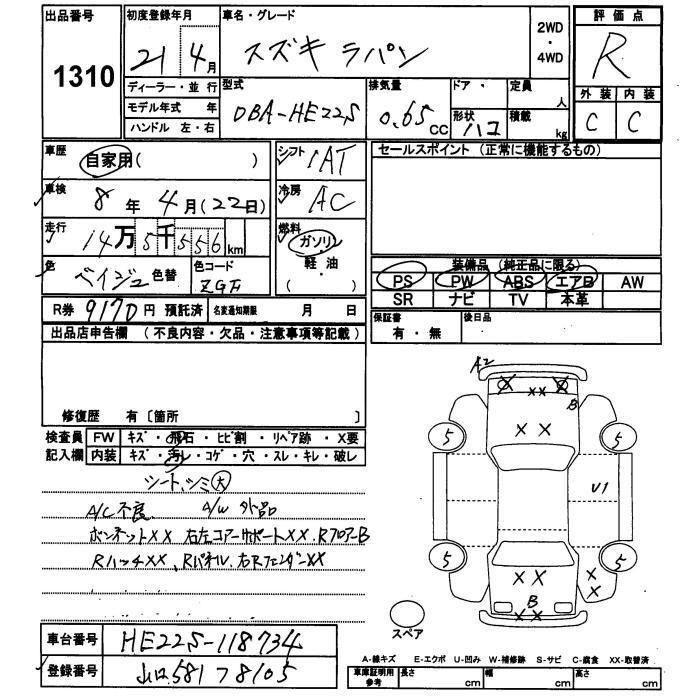 出品番号 初度登録年月 車名・グレード 評価点
1310 21 4月 スズキ ラパン 2WD ・ 4WD R
ディーラー・並行 型式 排気量 ドア ・ 定員 人 外装 内装
モデル年式 年 DBA-HE22S 0.65CC 形状 ハコ 積載 kg C C
ハンドル 左・右
車歴 自家用( ) シフト 1AT セールスポイント (正常に機能するもの)
車検 8年4月(22日) 冷房 AC
走行 14万5千556km 燃料 ガソリン
色 ベイジュ 色替 色コード ZGF 軽・油 ( )
装備品 (純正品に限る)
PS PW ABS エアB AW
SR ナビ TV 本革
R券 9170円 預託済 名変通知期限 月 日 保証書 有・無 後日品
出品店申告欄 (不良内容・欠品・注意事項等記載)
修復歴 有〔箇所 〕
検査員 FW キズ・飛石・ヒビ割・リペア跡・X要
記入欄 内装 キズ・汚レ・コゲ・穴・スレ・キレ・破レ
シート、シミ大
A/C不良 A/W 外品
ボンネットXX 右左コアーサポートXX、RフロアーB
RハッチXX、Rパネル、右RフェンダーXX
A2
X XX X B
XX
5 5
U1
5 5
XX X
B X
XX
スペア
車台番号 HE22S-118734
登録番号 山口581 ァ 8105
A-線キズ E-エクボ U-凹み W-補修跡 S-サビ C-腐食 XX-取替済
車庫証明用参考 長さ cm 幅 cm 高さ cm